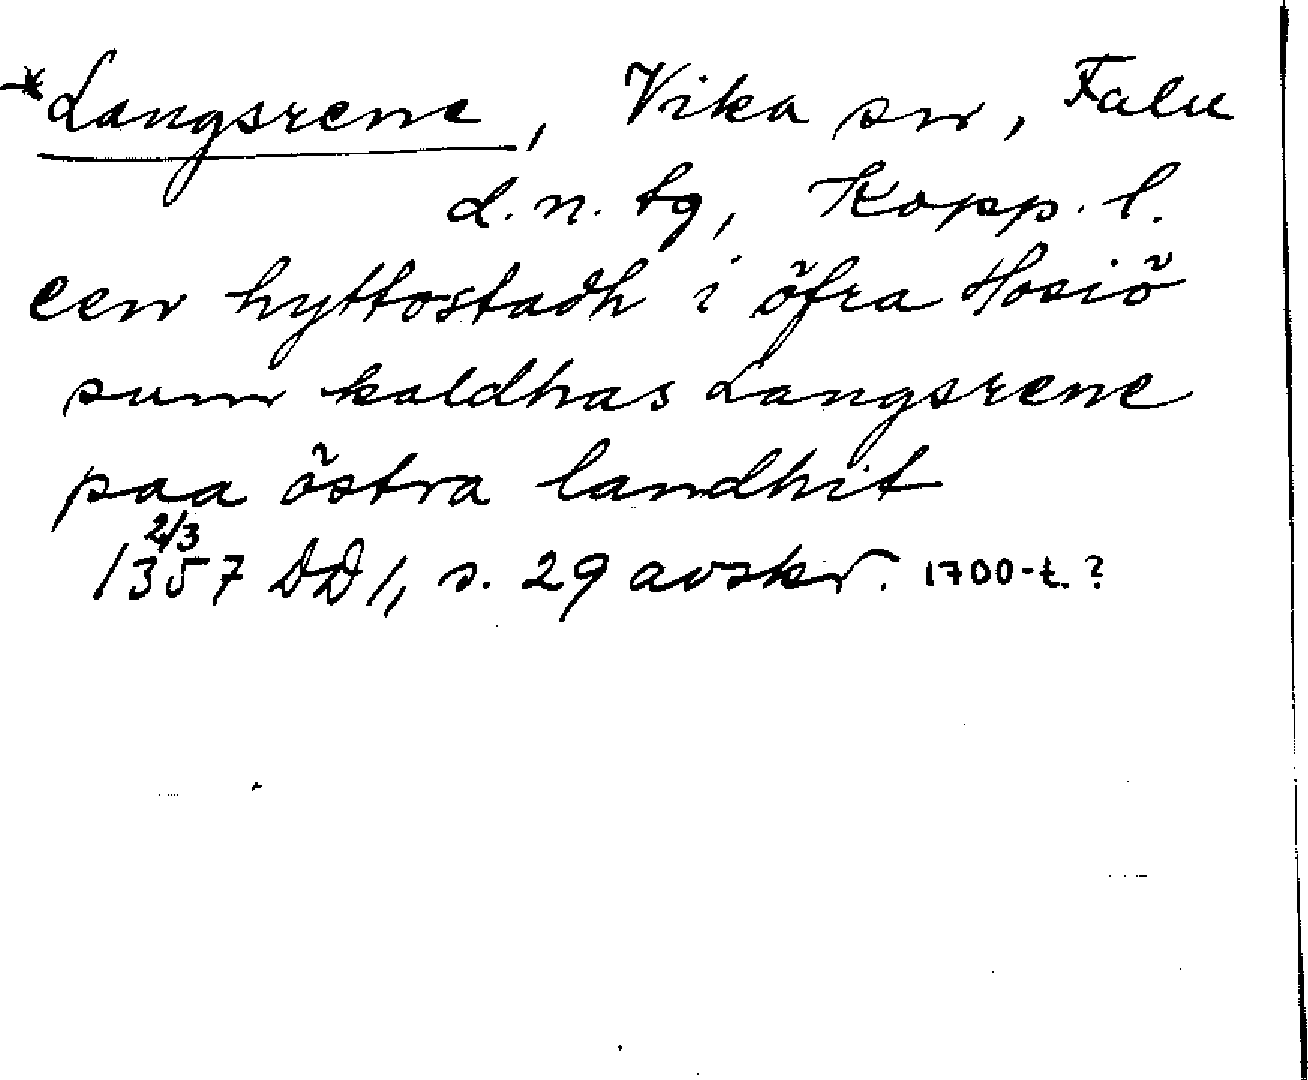 *Langsrene, Vika sn, Falu
d. n. tg, Kopp. l.
een hyttostadh i öfra Hosiö
sum kaldhas Langsrene
paa östra landhit
2/3
1357 DD 1, s. 29 avskr. 1700-t. ?